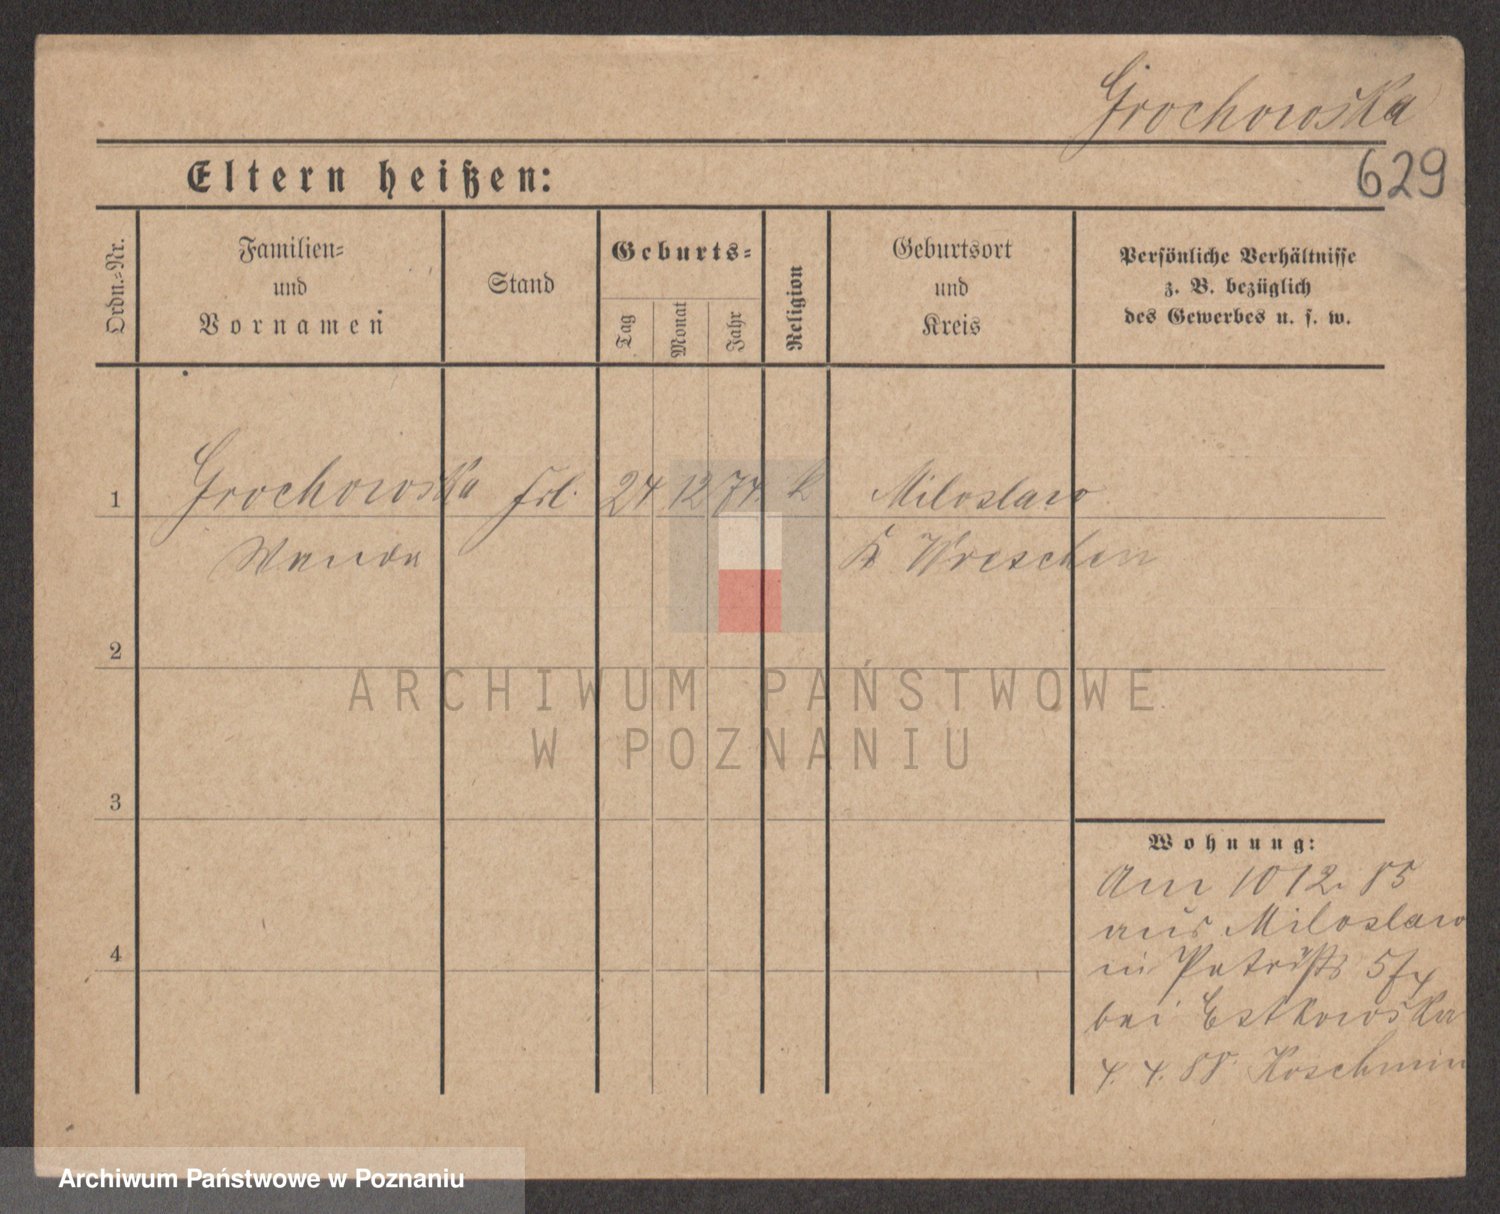 Grochowska
629
Eltern heißen:
Ordn.-Nr.
Familien-
und
Vornamen
Stand
Geburts-
Tag
Monat
Jahr
Religion
Geburtsort
und
Kreis
Persönliche Verhältnisse
z. B. bezüglich
des Gewerbes u. s. w.
1
Grochowska Frl. 24 12 74. k Miloslaw
Wanda K Wreschen
2
ARCHIWUM PAŃSTWOWE
W POZNANIU
3
Wohnung:
Am 10 12. 85
aus Miloslaw
in
4
bei Estkowska
4. 4. 88 Koschmin
Archiwum Państwowe w Poznaniu